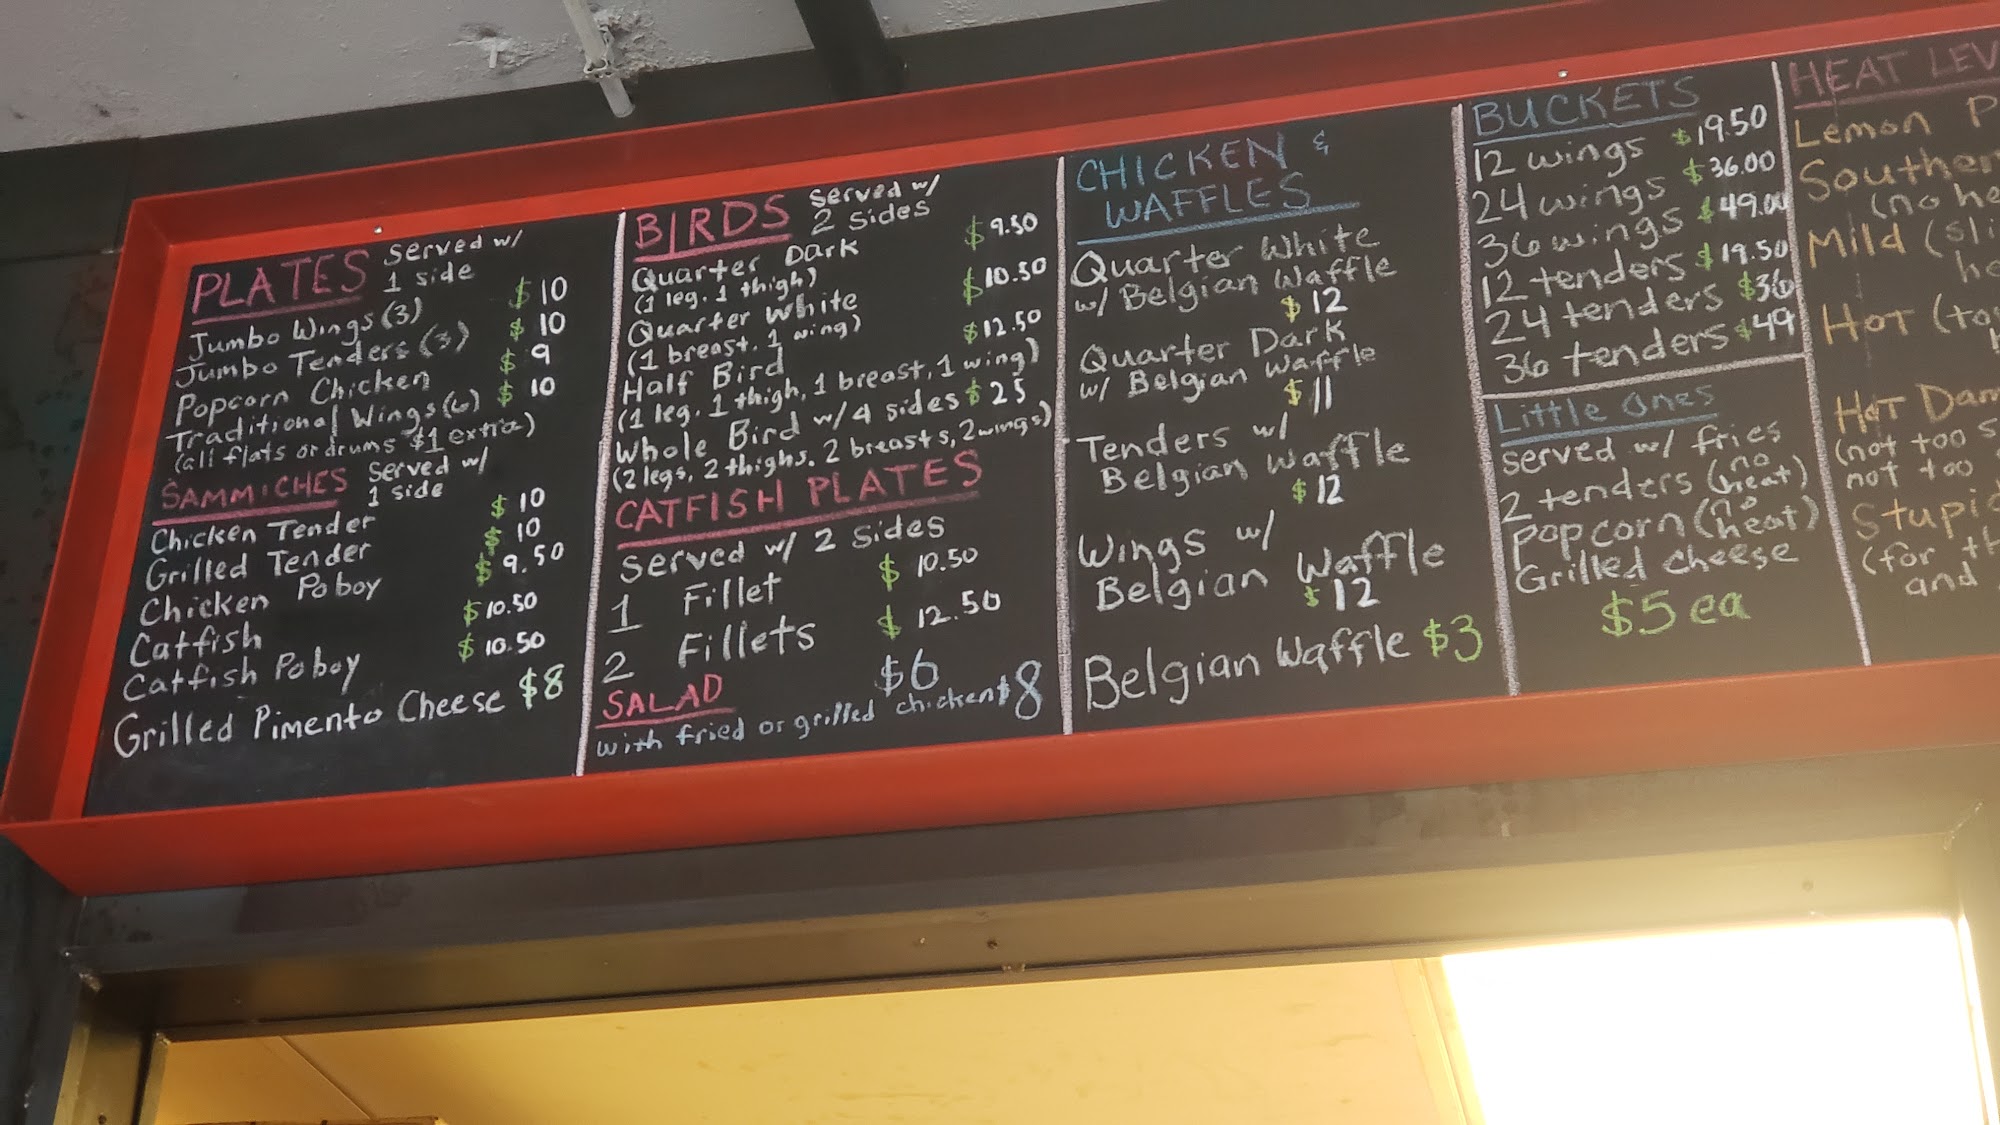 PLATES served w/
1 side
Jumbo Wings (3) $10
Jumbo Tenders (3) $10
Popcorn Chicken $9
Traditional Wings (6) $10
(all flats or drums $1 extra)
SAMMICHES served w/
1 side
Chicken Tender $10
Grilled Tender $10
Chicken Poboy $9.50
Catfish $10.50
Catfish Poboy $10.50
Grilled Pimento Cheese $8
BIRDS served w/
2 sides
Quarter Dark $9.50
(1 leg. 1 thigh)
Quarter White $10.50
(1 breast. 1 wing)
Half Bird $12.50
(1 leg. 1 thigh, 1 breast, 1 wing)
Whole Bird w/ 4 sides $25
(2 legs, 2 thighs. 2 breasts, 2 wings)
CATFISH PLATES
served w/ 2 sides
1 Fillet $10.50
2 Fillets $12.50
SALAD $6
with fried or grilled chicken $8
CHICKEN &
WAFFLES
Quarter White
w/ Belgian Waffle
$12
Quarter Dark
w/ Belgian Waffle
$11
Tenders w/
Belgian Waffle
$12
Wings w/
Belgian Waffle
$12
Belgian Waffle $3
BUCKETS
12 wings $19.50
24 wings $36.00
36 wings $49.00
12 tenders $19.50
24 tenders $36
36 tenders $49
Little Ones
served w/ fries
2 tenders (no heat)
popcorn (no heat)
Grilled cheese
$5 ea
HEAT LEV
Lemon P
Souther
(no he
Mild (sli
he
Hot (to
Hot Dam
(not too s
not too
Stupid
(for th
and